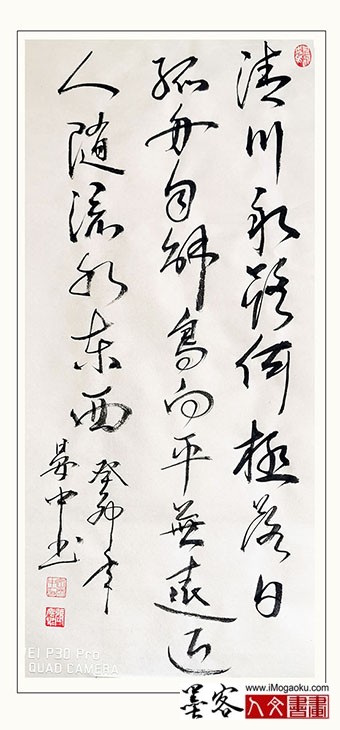 清川永路何極落日
孤舟自解鸟向平蕪遠近
人随流水东西
癸卯年
中书
EI P30 Pro
QUAD CAMERA
墨客
www.iMogaoku.com
人文書畫